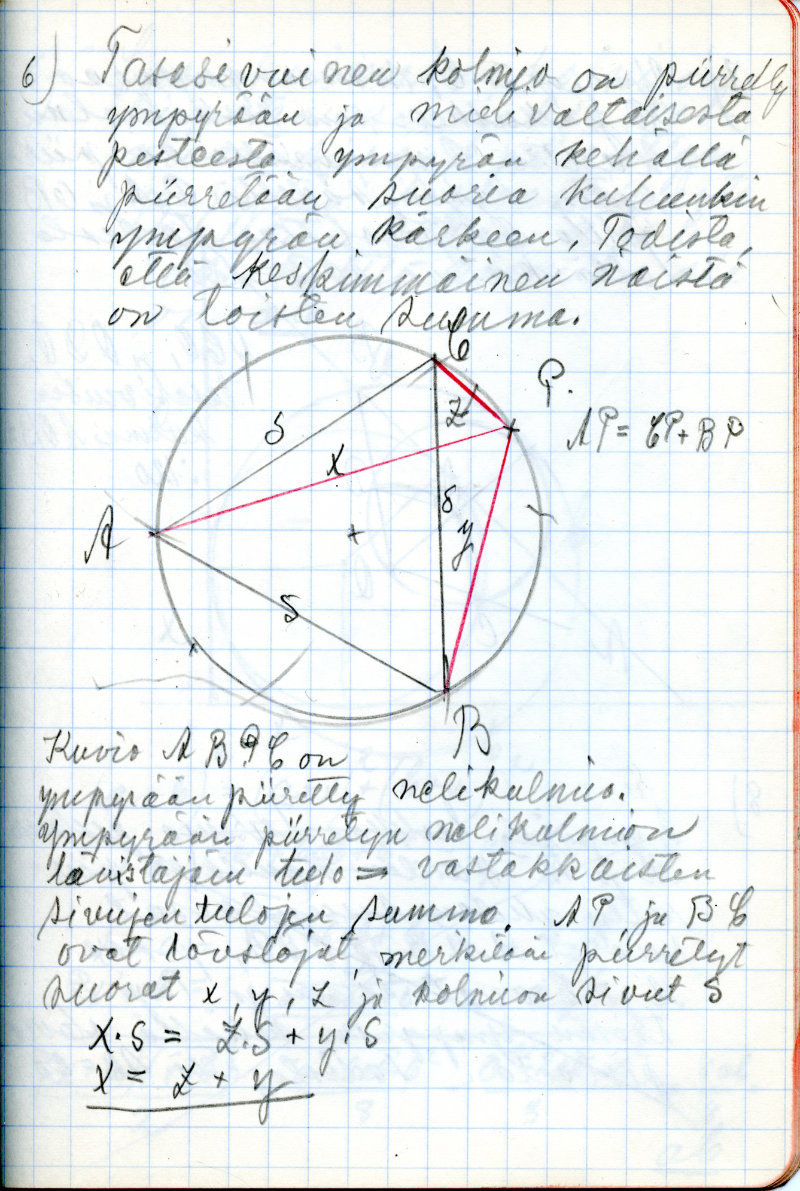 6) Tasasivuinen kolmio on piirretty
ympyrään ja mielivaltaisesta
pisteestä ympyrän kehällä
piirretään suoria kuhunkin
ympyrän kärkeen. Todista,
että keskimmäinen näistä
on toisten summa.
C
P.
z
AP = CP + BP
s
x
s
A
y
s
B
Kuvio ABPC on
ympyrään piirretty nelikulmio.
Ympyrään piirretyn nelikulmion
lävistäjäin tulo = vastakkaisten
sivujen tulojen summa. AP ja BC
ovat lävistäjät, merkitään piirretyt
suorat x, y, z ja kolmion sivut s
x·s = z·s + y·s
x = z + y